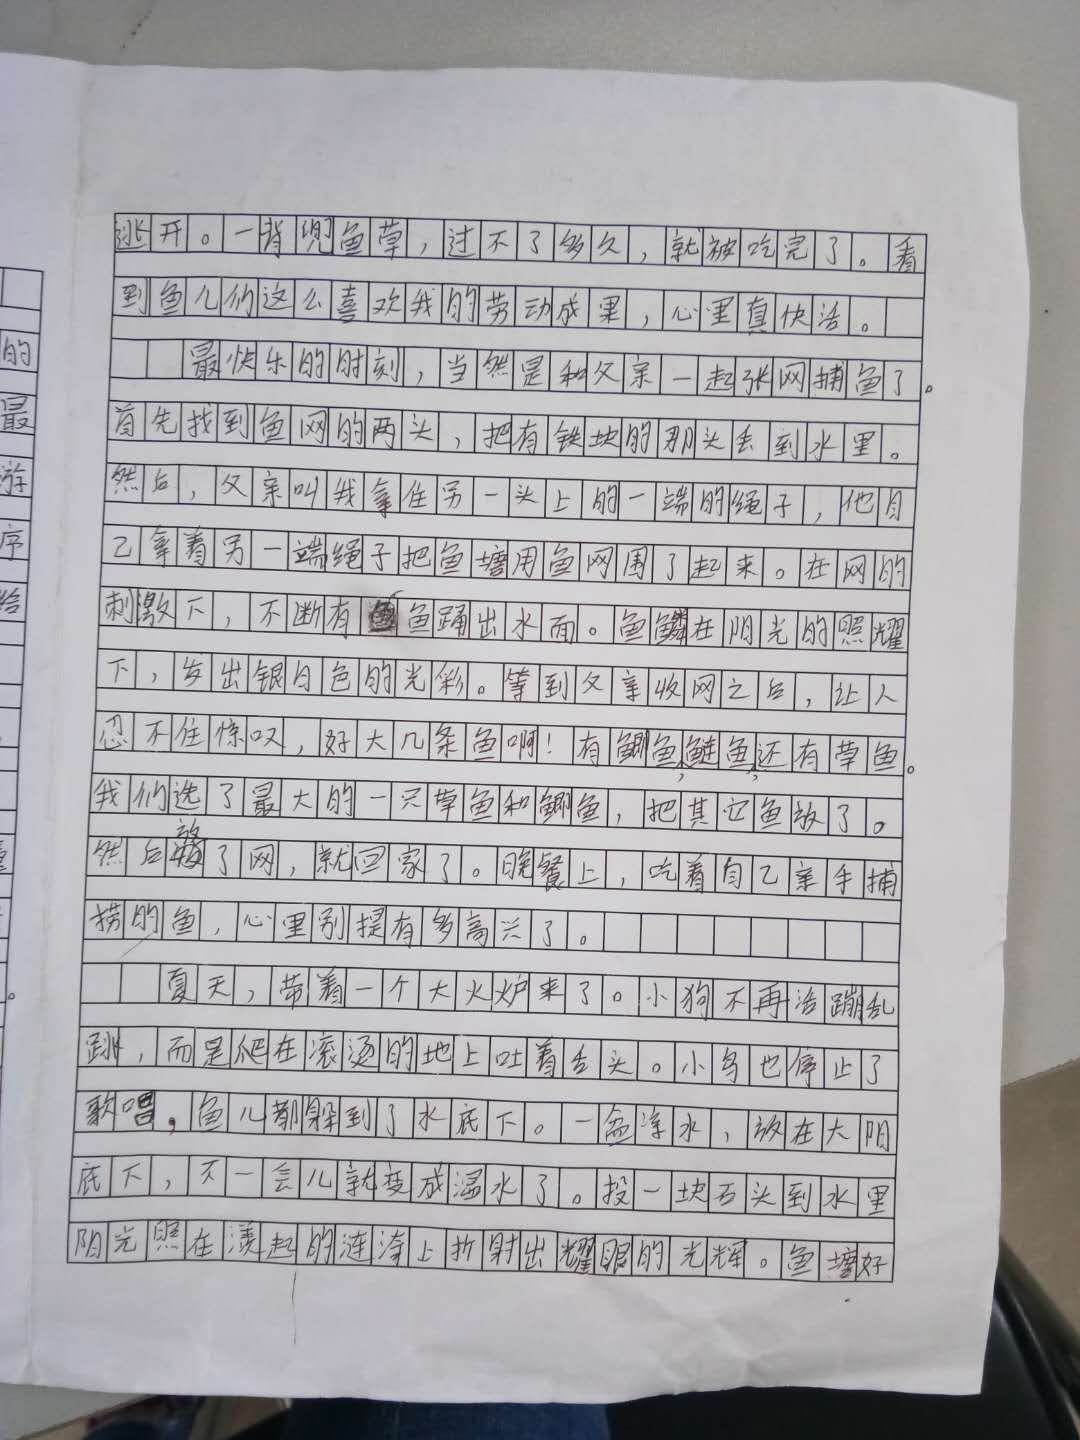 逃开。一背兜鱼草，过不了多久，就被吃完了。看
到鱼儿们这么喜欢我的劳动成果，心里真快活。
最快乐的时刻，当然是和父亲一起张网捕鱼了。
首先找到鱼网的两头，把有铁块的那头丢到水里。
然后，父亲叫我拿住另一头上的一端的绳子，他自
己拿着另一端绳子把鱼塘用鱼网围了起来。在网的
刺激下，不断有鱼踊出水面。鱼鳞在阳光的照耀
下，发出银白色的光彩。等到父亲收网之后，让人
忍不住惊叹，好大几条鱼啊！有鲫鱼，鲢鱼，还有草鱼。
我们选了最大的一只草鱼和鲫鱼，把其它鱼放了。
然后放了网，就回家了。晚餐上，吃着自己亲手捕
捞的鱼，心里别提有多高兴了。
夏天，带着一个大火炉来了。小狗不再活蹦乱
跳，而是爬在滚烫的地上吐着舌头。小鸟也停止了
歌唱，鱼儿都躲到了水底下。一盆凉水，放在大阳
底下，不一会儿就变成温水了。投一块石头到水里
阳光照在漾起的涟漪上折射出耀眼的光辉。鱼塘好
的
最
游
序
给